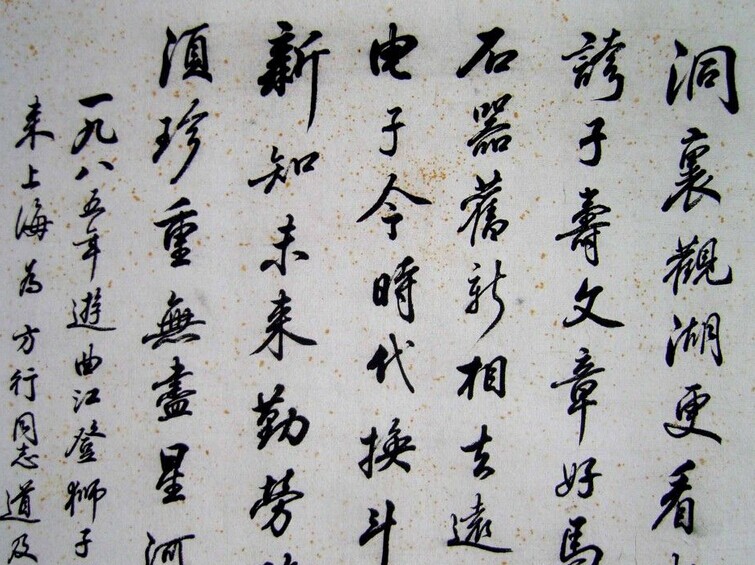 洞裏觀湖更看
誇子壽文章好馬
石器舊新相去遠
电子今時代換斗
新知未来勤勞
須珍重無盡星河
一九八五年遊曲江登獅子
来上海為方行同志道及